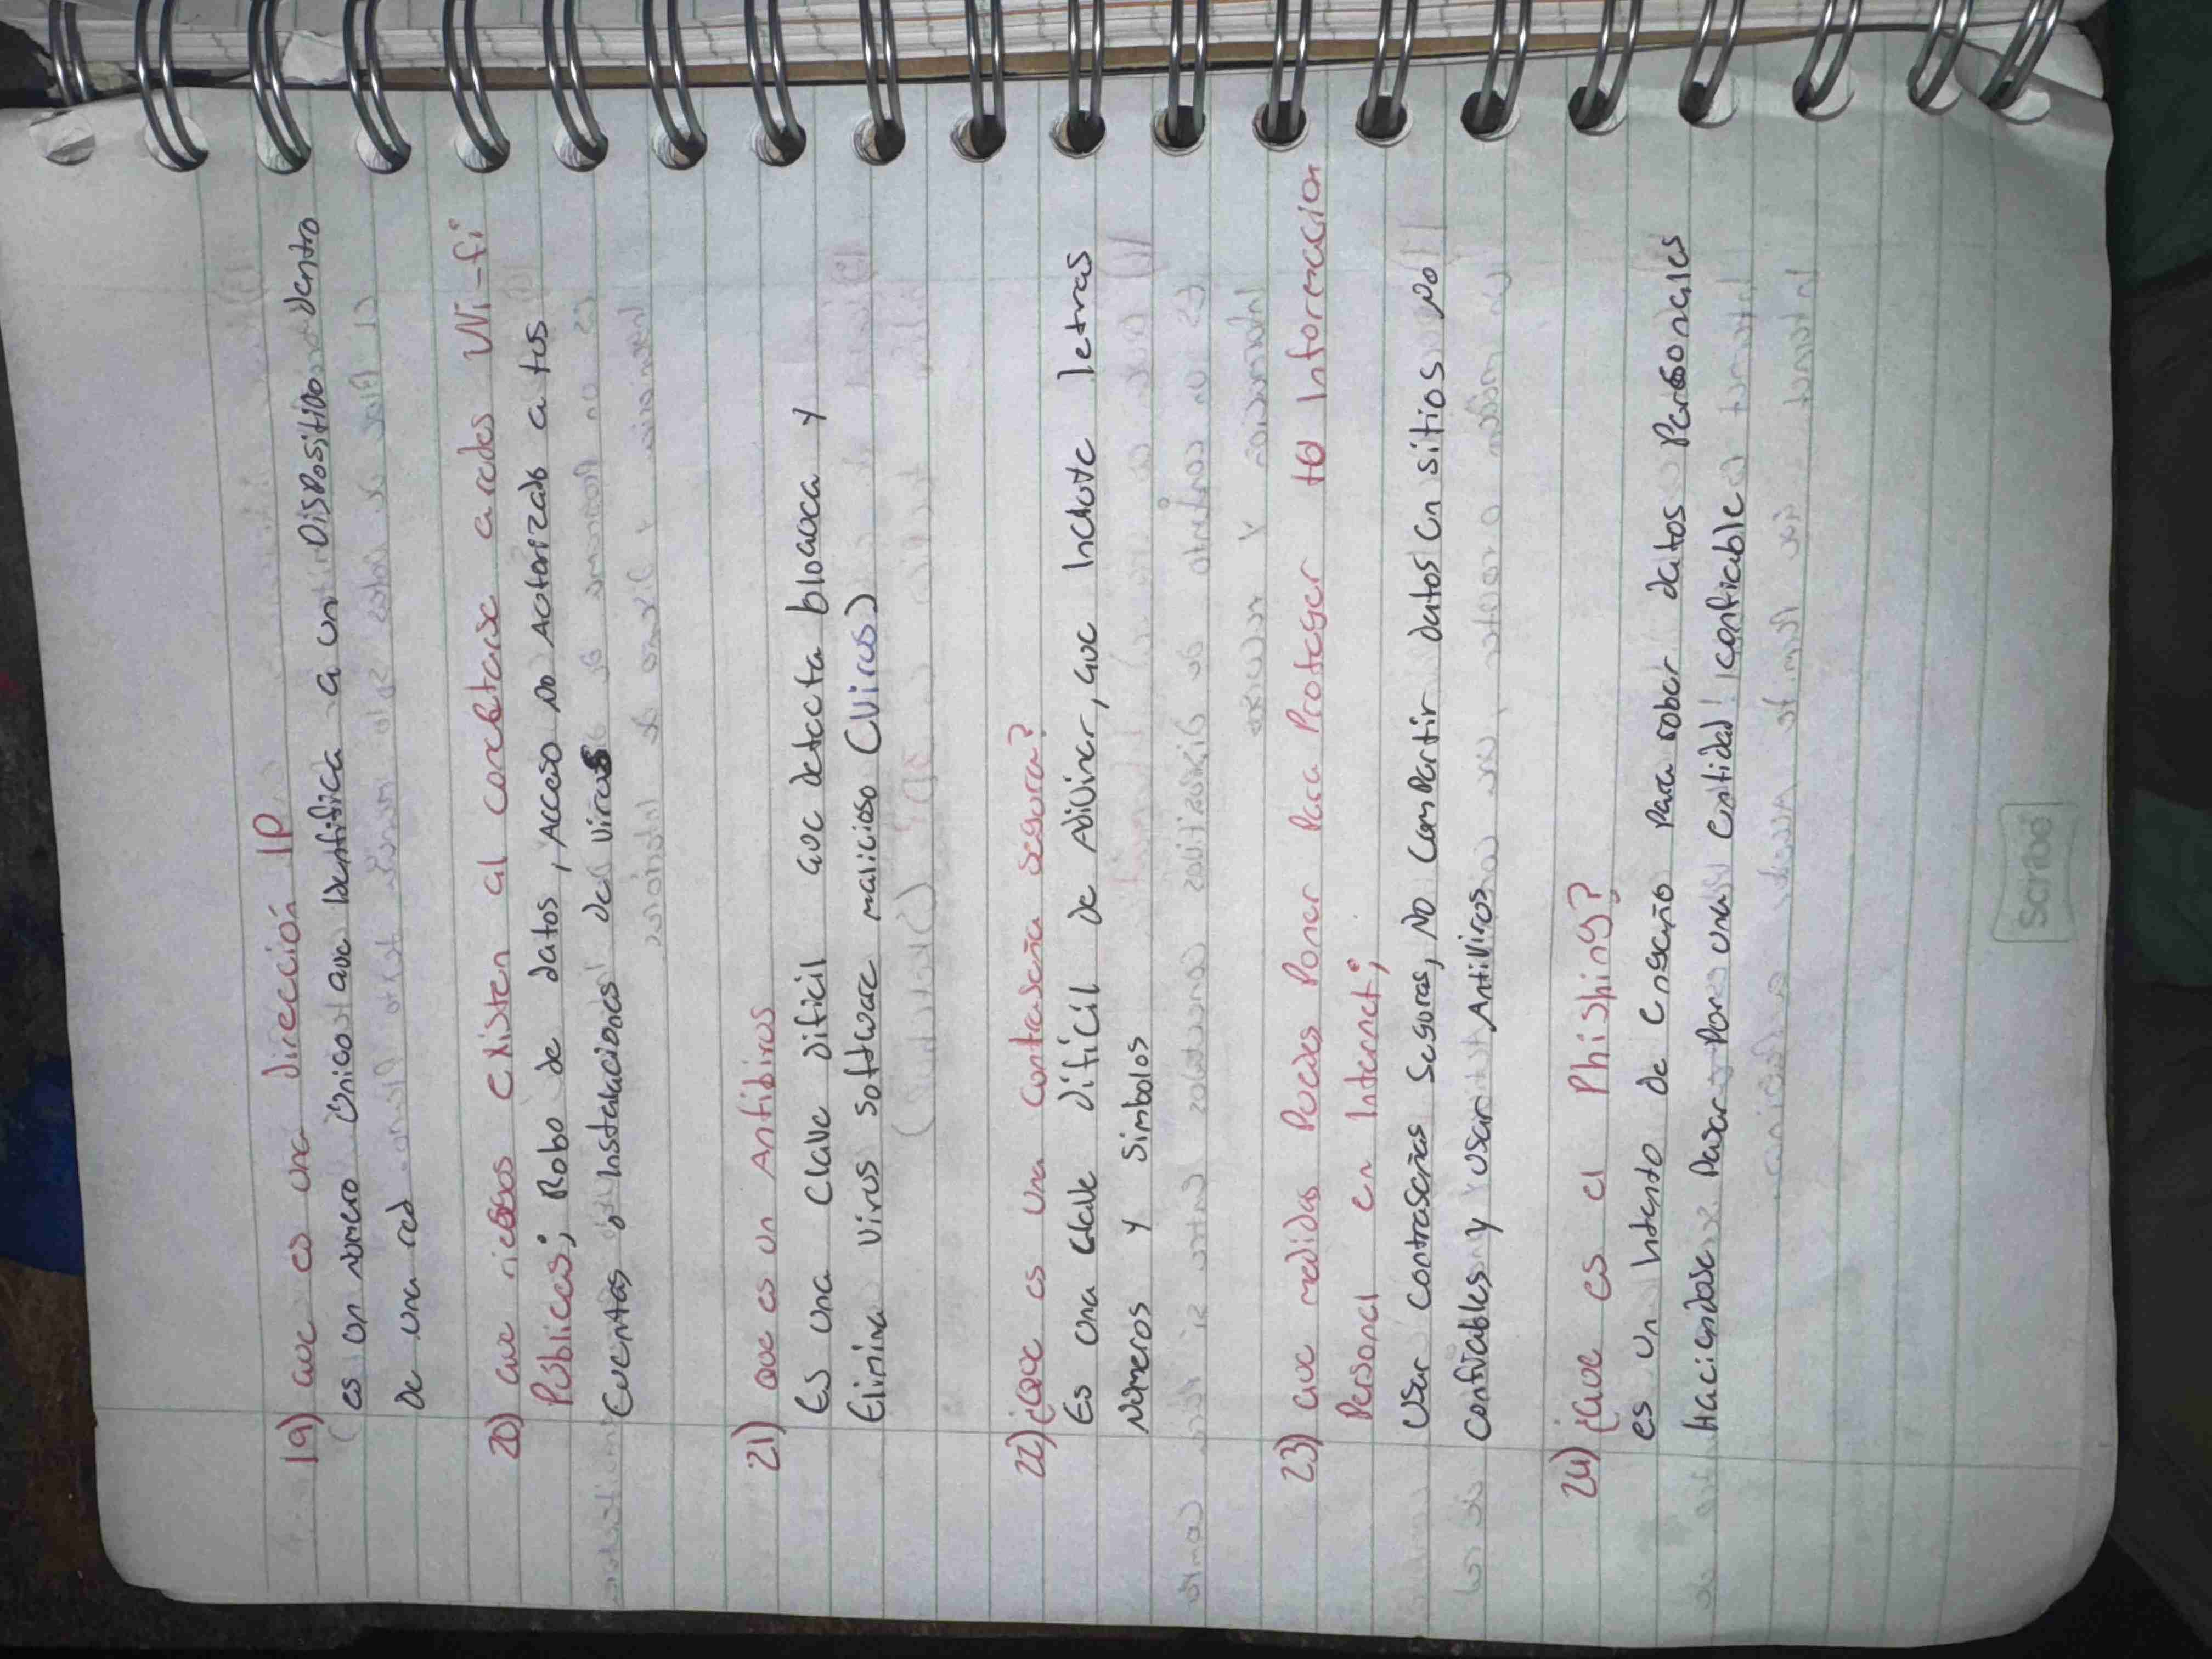 19) que es una dirección IP
es un número único que Identifica a un Dispositivo dentro
De una red
20) que riesgos existen al conectarse a redes Wi-fi
Públicas; Robo de datos, Acceso no Autorizado a tus
Cuentas, o Instalaciones de Virus
21) que es un Antibirus
Es una clave dificil que detecta bloquea y
Elimina virus software malicioso (Virus)
22) ¿Que es una contraseña segura?
Es una clave difícil de Adivinar, que Incluye letras
Números y Simbolos
23) que medidas Puedes Poner Para Proteger tu Informacion
Personal en Internet;
Usar contraseñas Seguras, No Compartir datos en sitios no
confiables y usar Antivirus
24) ¿Que es el Phishing?
es un Intento de engaño Para robar datos Personales
Haciendose Pasar Por una entidad confiable
Scribe